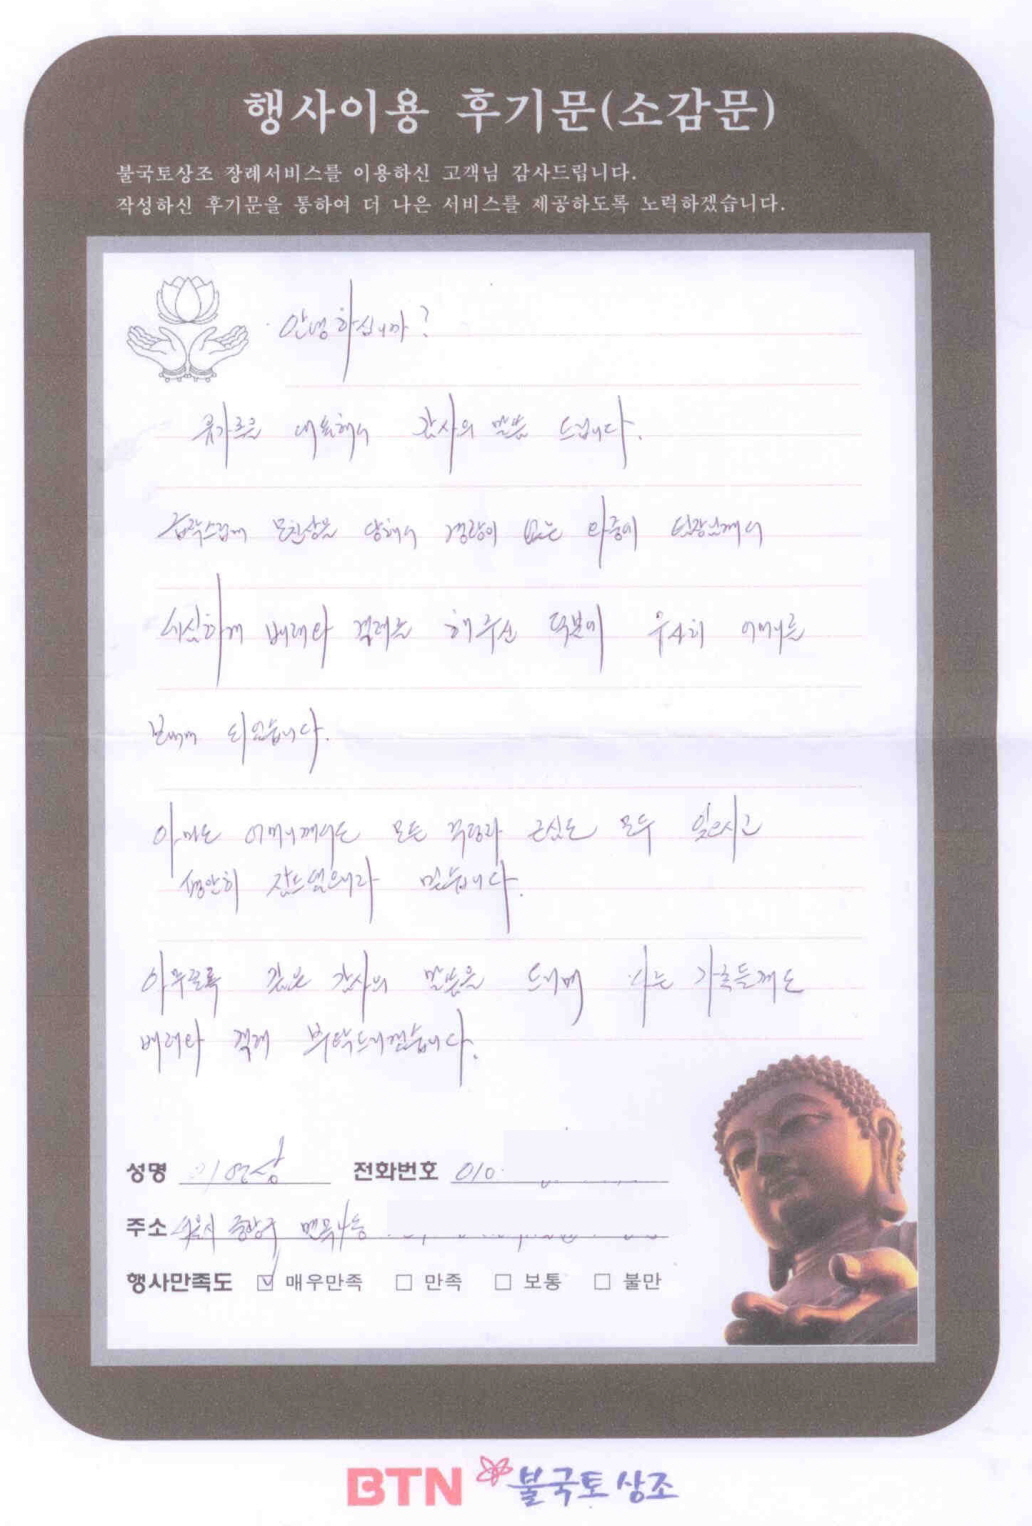 행사이용 후기문(소감문)
불국토상조 장례서비스를 이용하신 고객님 감사드립니다.
작성하신 후기문을 통하여 더 나은 서비스를 제공하도록 노력하겠습니다.
안녕하십니까?
대표해서 감사의 말씀 드립니다.
갑작스럽게 모친상을 당해서 경황이 없는 와중에 팀장님께서
세심하게 배려와 격려를 해주신 덕분에 무사히 어머니를
보내게 되었습니다.
아마도 어머니께서도 모든 걱정과 근심도 모두 잊으시고
평안히 잠드셨으리라 믿습니다.
아무쪼록 깊은 감사의 말씀을 드리며 가족들께도
배려와 격려 부탁드리겠습니다.
성명 전화번호 010
주소 서울시 중랑구 면목4동
행사만족도 ☑ 매우만족 □ 만족 □ 보통 □ 불만
BTN 불국토상조